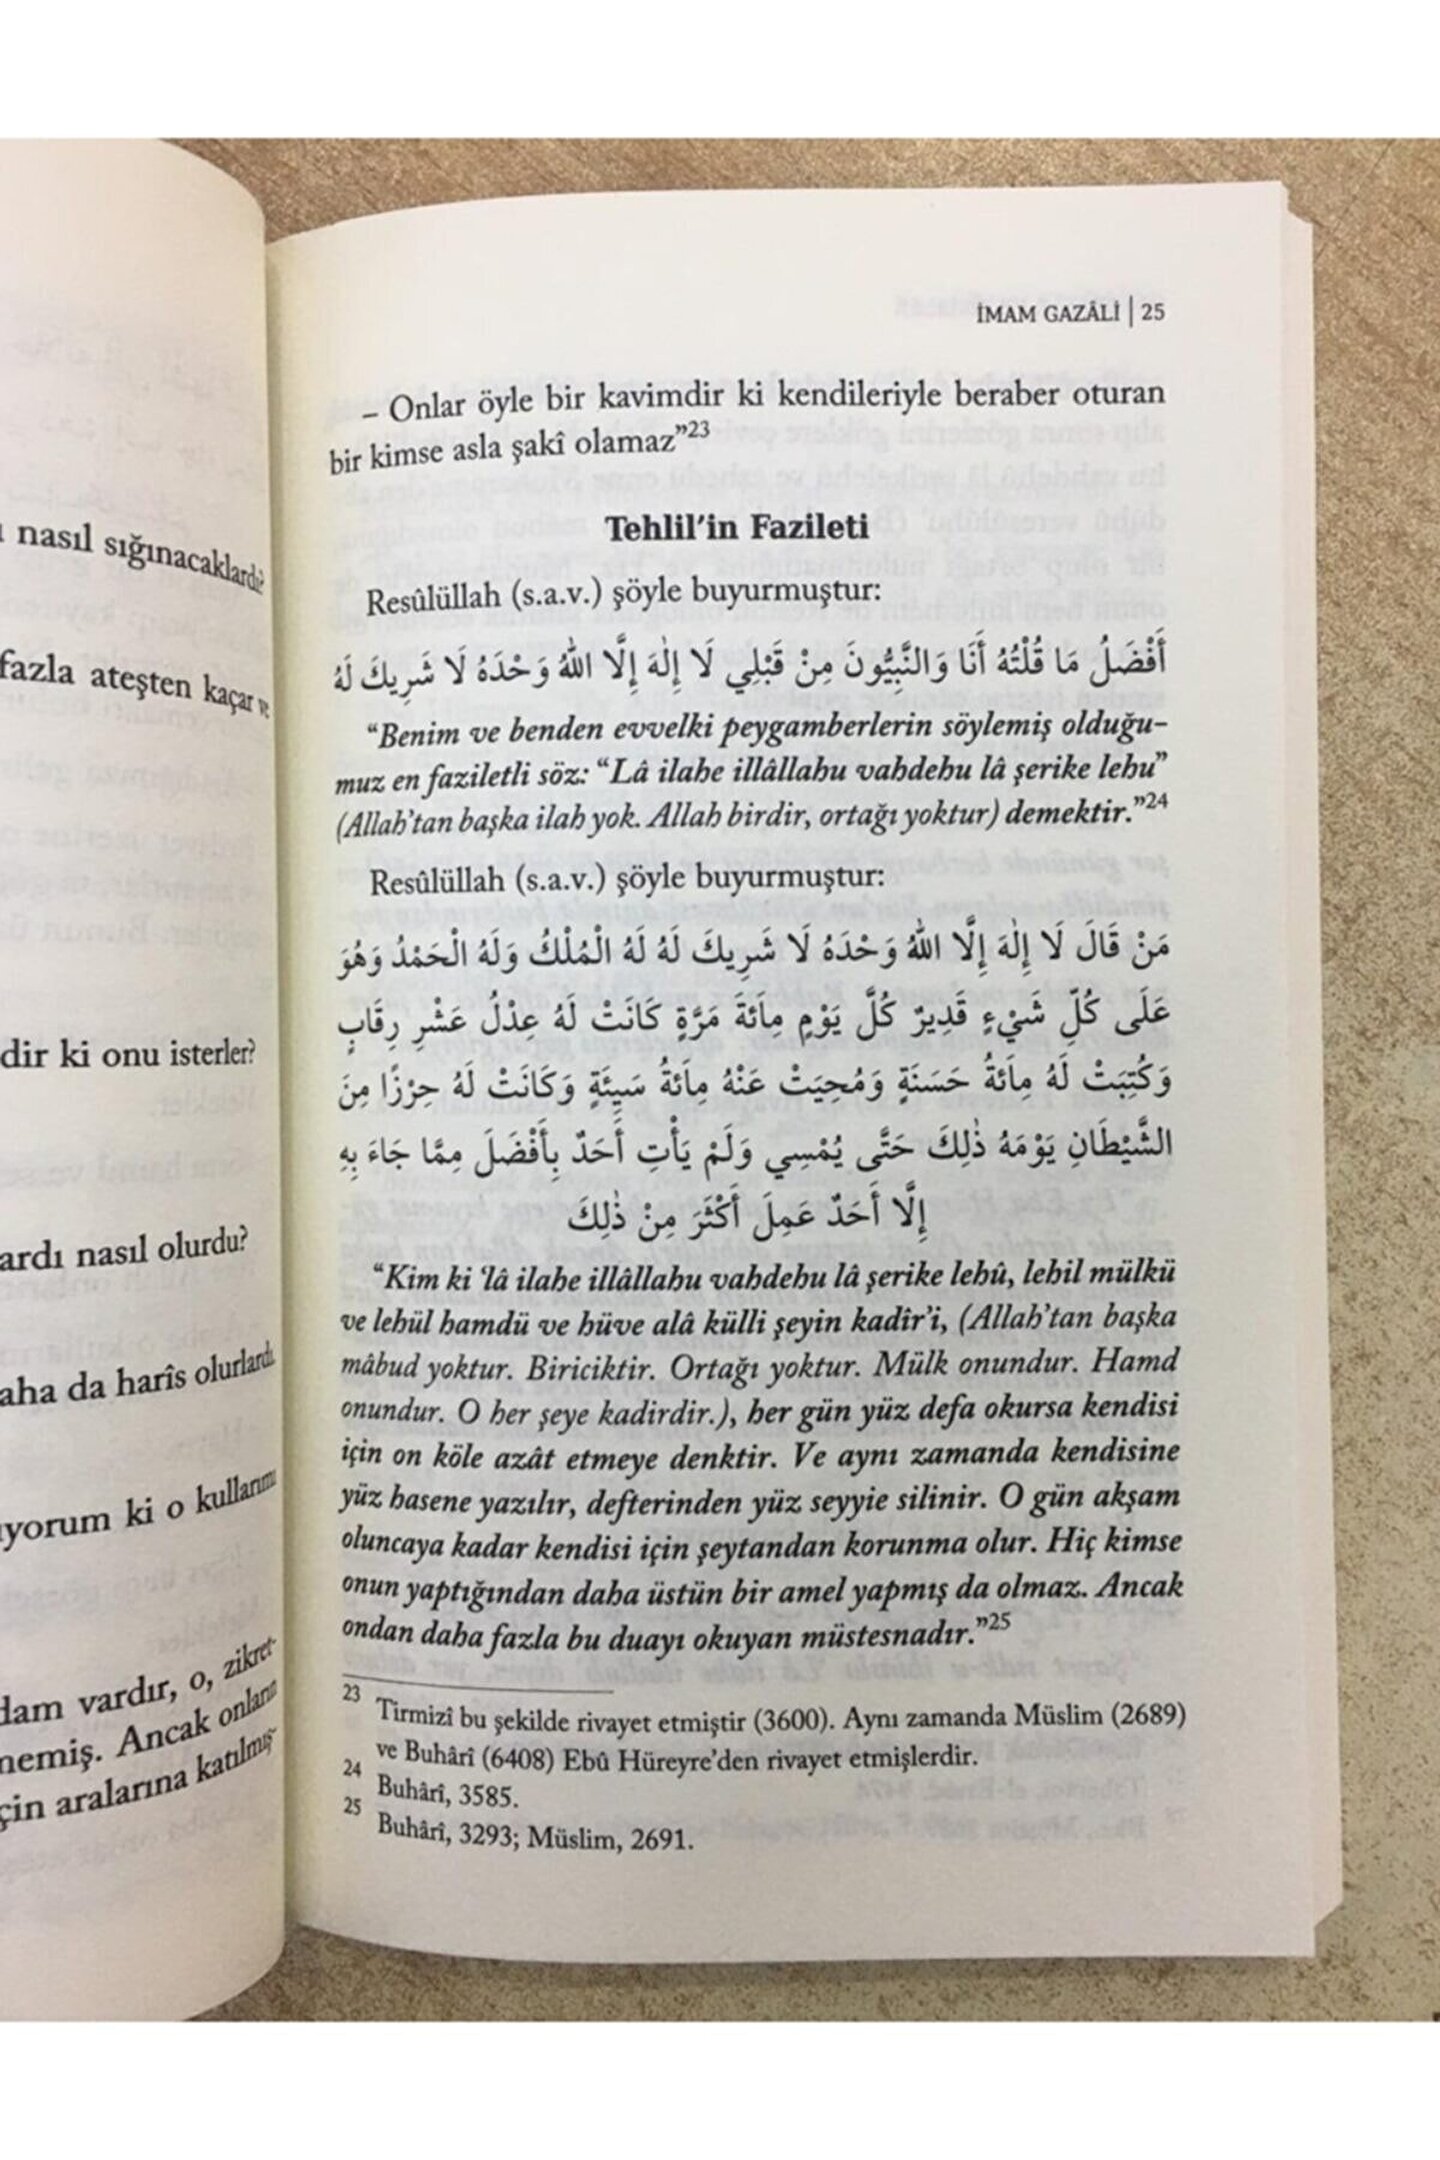 nasıl sığınacaklardı?
fazla ateşten kaçar ve
dir ki onu isterler?
ardı nasıl olurdu?
aha da harîs olurlardı.
ıyorum ki o kullarımı
dam vardır, o, zikret-
nemiş. Ancak onların
çin aralarına katılmış-
İMAM GAZÂLİ | 25
– Onlar öyle bir kavimdir ki kendileriyle beraber oturan
bir kimse asla şakî olamaz”23
Tehlil’in Fazileti
Resûlüllah (s.a.v.) şöyle buyurmuştur:
أَفْضَلُ مَا قُلْتُهُ أَنَا وَالنَّبِيُّونَ مِنْ قَبْلِي لَا إِلٰهَ إِلَّا اللهُ وَحْدَهُ لَا شَرِيكَ لَهُ
“Benim ve benden evvelki peygamberlerin söylemiş olduğu-
muz en faziletli söz: “Lâ ilahe illâllahu vahdehu lâ şerike lehu”
(Allah’tan başka ilah yok. Allah birdir, ortağı yoktur) demektir.”24
Resûlüllah (s.a.v.) şöyle buyurmuştur:
مَنْ قَالَ لَا إِلٰهَ إِلَّا اللهُ وَحْدَهُ لَا شَرِيكَ لَهُ لَهُ الْمُلْكُ وَلَهُ الْحَمْدُ وَهُوَ
عَلَى كُلِّ شَيْءٍ قَدِيرٌ كُلَّ يَوْمٍ مِائَةَ مَرَّةٍ كَانَتْ لَهُ عِدْلُ عَشْرِ رِقَابٍ
وَكُتِبَتْ لَهُ مِائَةُ حَسَنَةٍ وَمُحِيَتْ عَنْهُ مِائَةُ سَيِئَةٍ وَكَانَتْ لَهُ حِرْزًا مِنَ
الشَّيْطَانِ يَوْمَهُ ذٰلِكَ حَتَّى يُمْسِي وَلَمْ يَأْتِ أَحَدٌ بِأَفْضَلَ مِمَّا جَاءَ بِهِ
إِلَّا أَحَدٌ عَمِلَ أَكْثَرَ مِنْ ذٰلِكَ
“Kim ki ‘lâ ilahe illâllahu vahdehu lâ şerike lehû, lehil mülkü
ve lehül hamdü ve hüve alâ külli şeyin kadîr’i, (Allah’tan başka
mâbud yoktur. Biriciktir. Ortağı yoktur. Mülk onundur. Hamd
onundur. O her şeye kadirdir.), her gün yüz defa okursa kendisi
için on köle azât etmeye denktir. Ve aynı zamanda kendisine
yüz hasene yazılır, defterinden yüz seyyie silinir. O gün akşam
oluncaya kadar kendisi için şeytandan korunma olur. Hiç kimse
onun yaptığından daha üstün bir amel yapmış da olmaz. Ancak
ondan daha fazla bu duayı okuyan müstesnadır.”25
23 Tirmizî bu şekilde rivayet etmiştir (3600). Aynı zamanda Müslim (2689)
ve Buhârî (6408) Ebû Hüreyre’den rivayet etmişlerdir.
24 Buhârî, 3585.
25 Buhârî, 3293; Müslim, 2691.